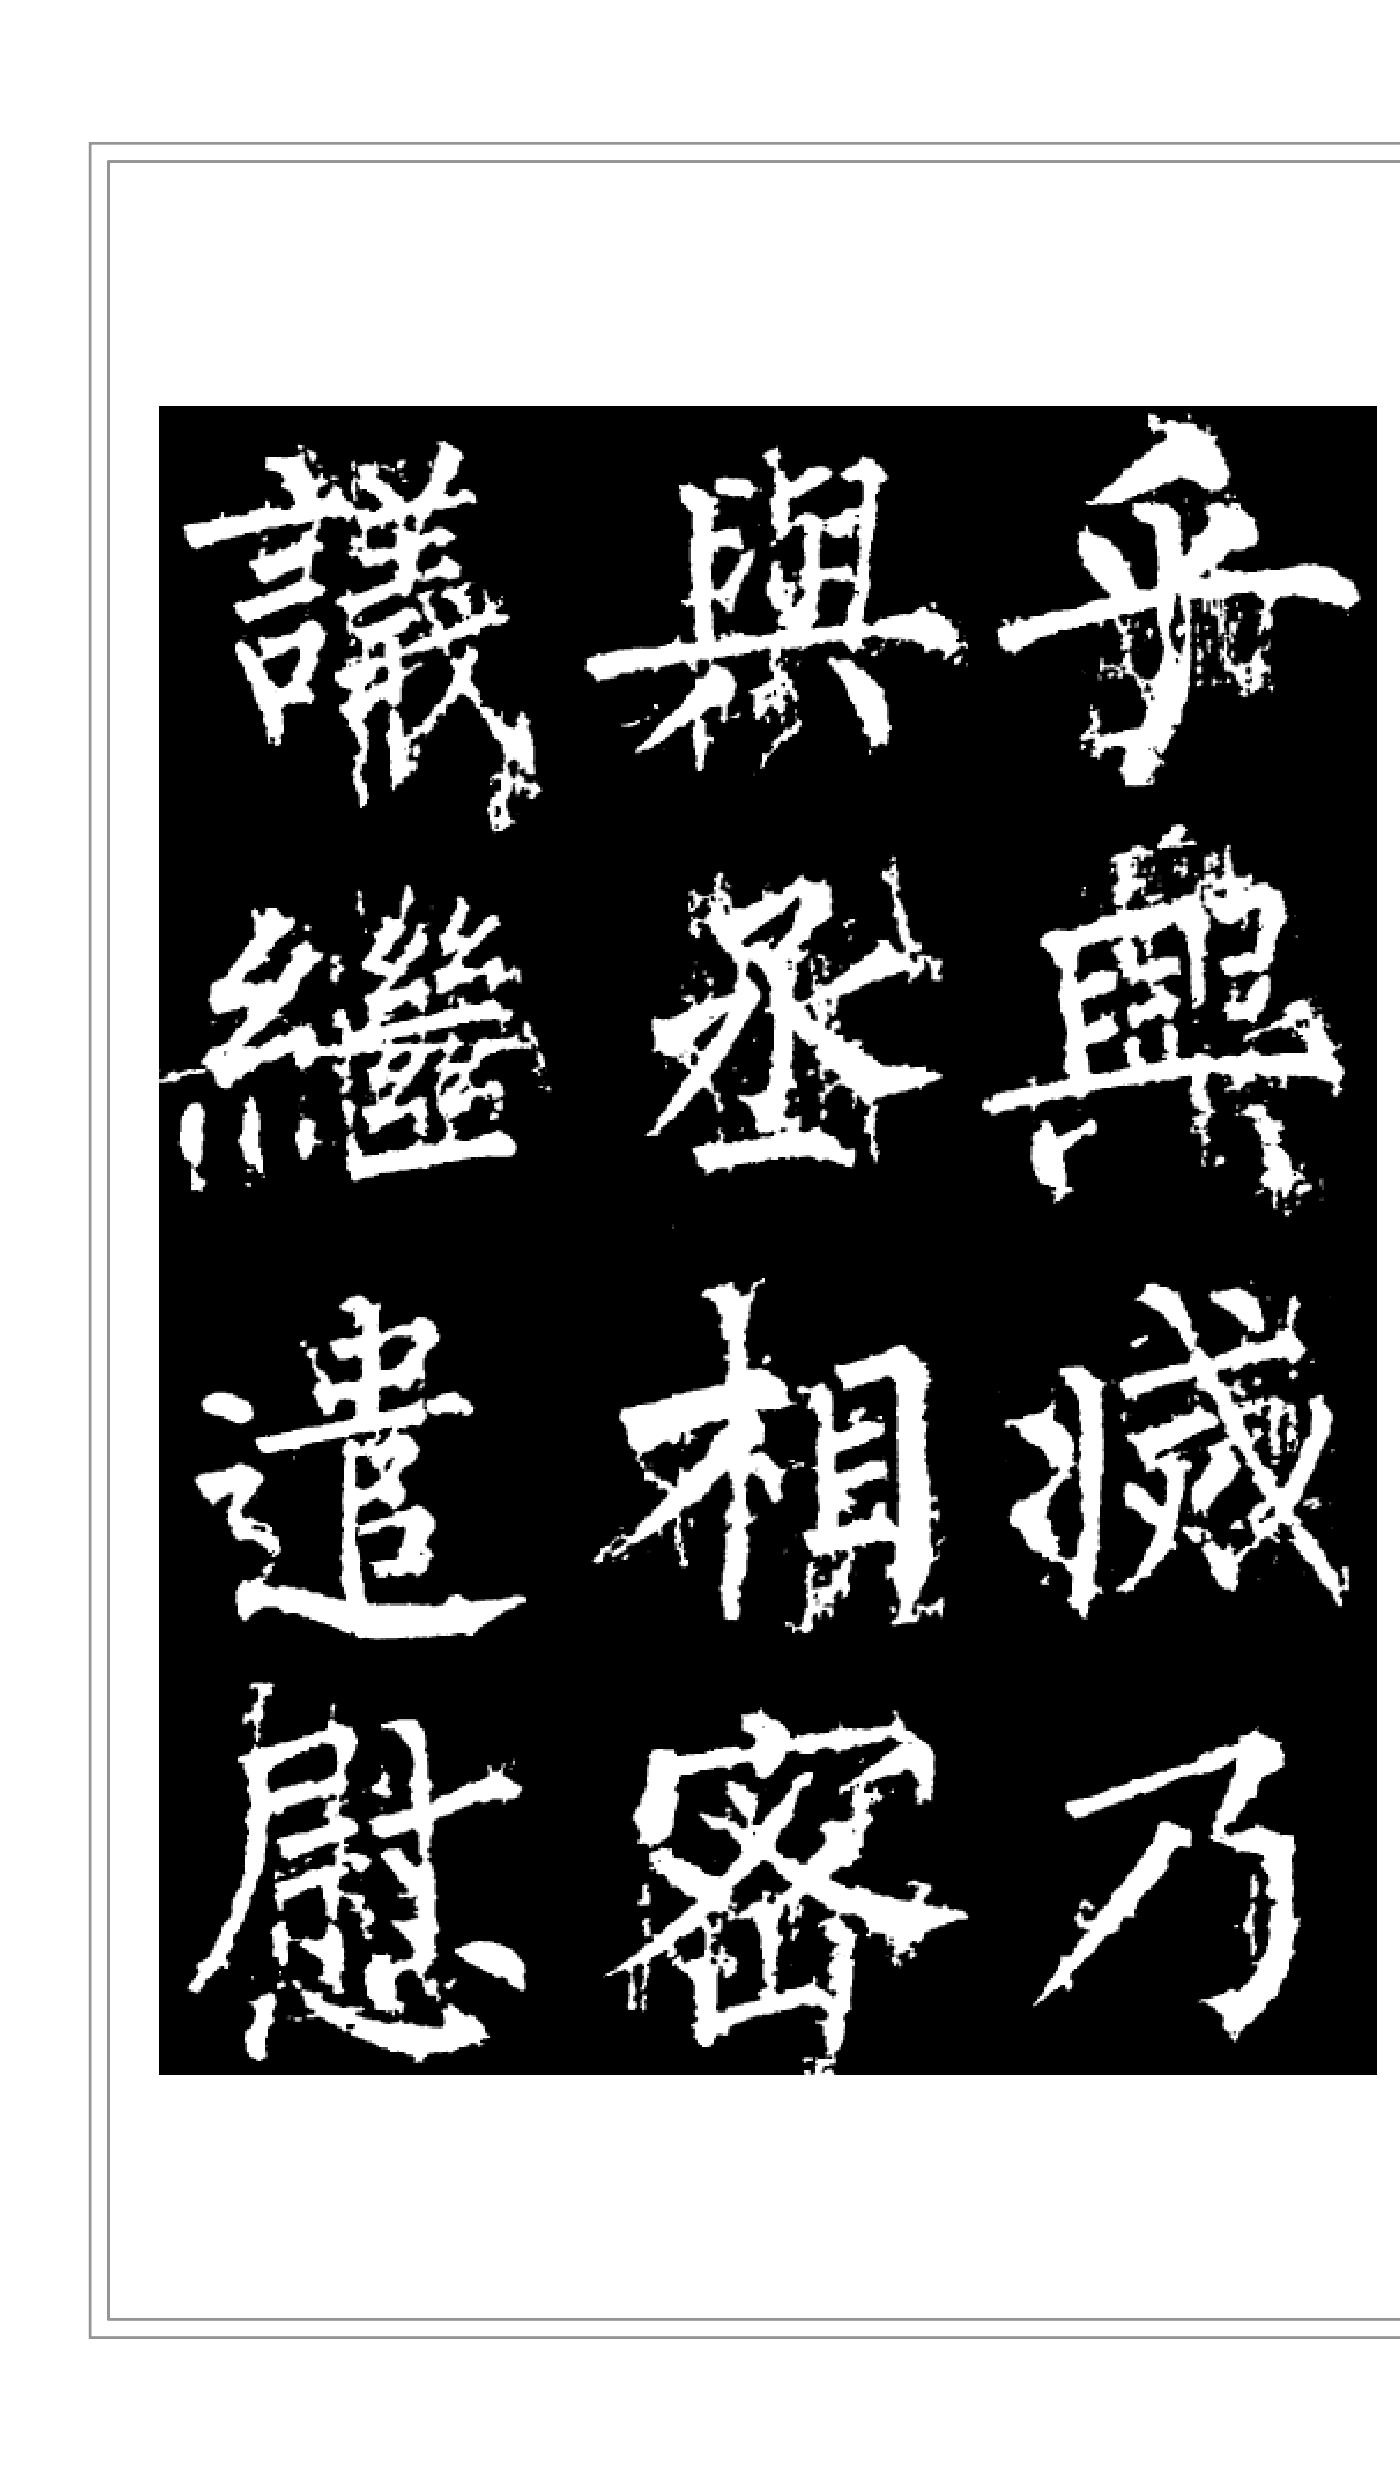 乎興滅乃
與丞相密
議繼遣慰